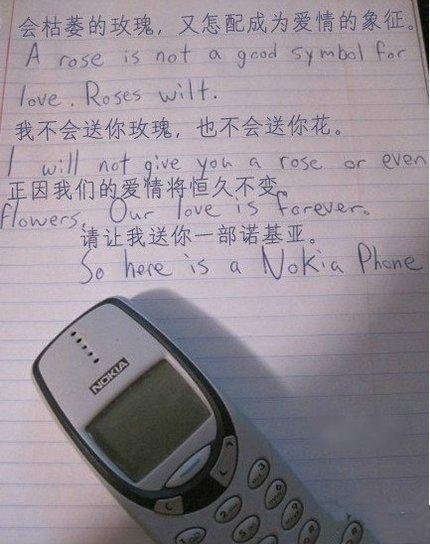 会枯萎的玫瑰，又怎配成为爱情的象征。
A rose is not a good symbol for
love. Roses wilt.
我不会送你玫瑰，也不会送你花。
I will not give you a rose or even
正因我们的爱情将恒久不变。
flowers. Our love is forever.
请让我送你一部诺基亚。
So here is a Nokia Phone
NOKIA
C
1
2
3